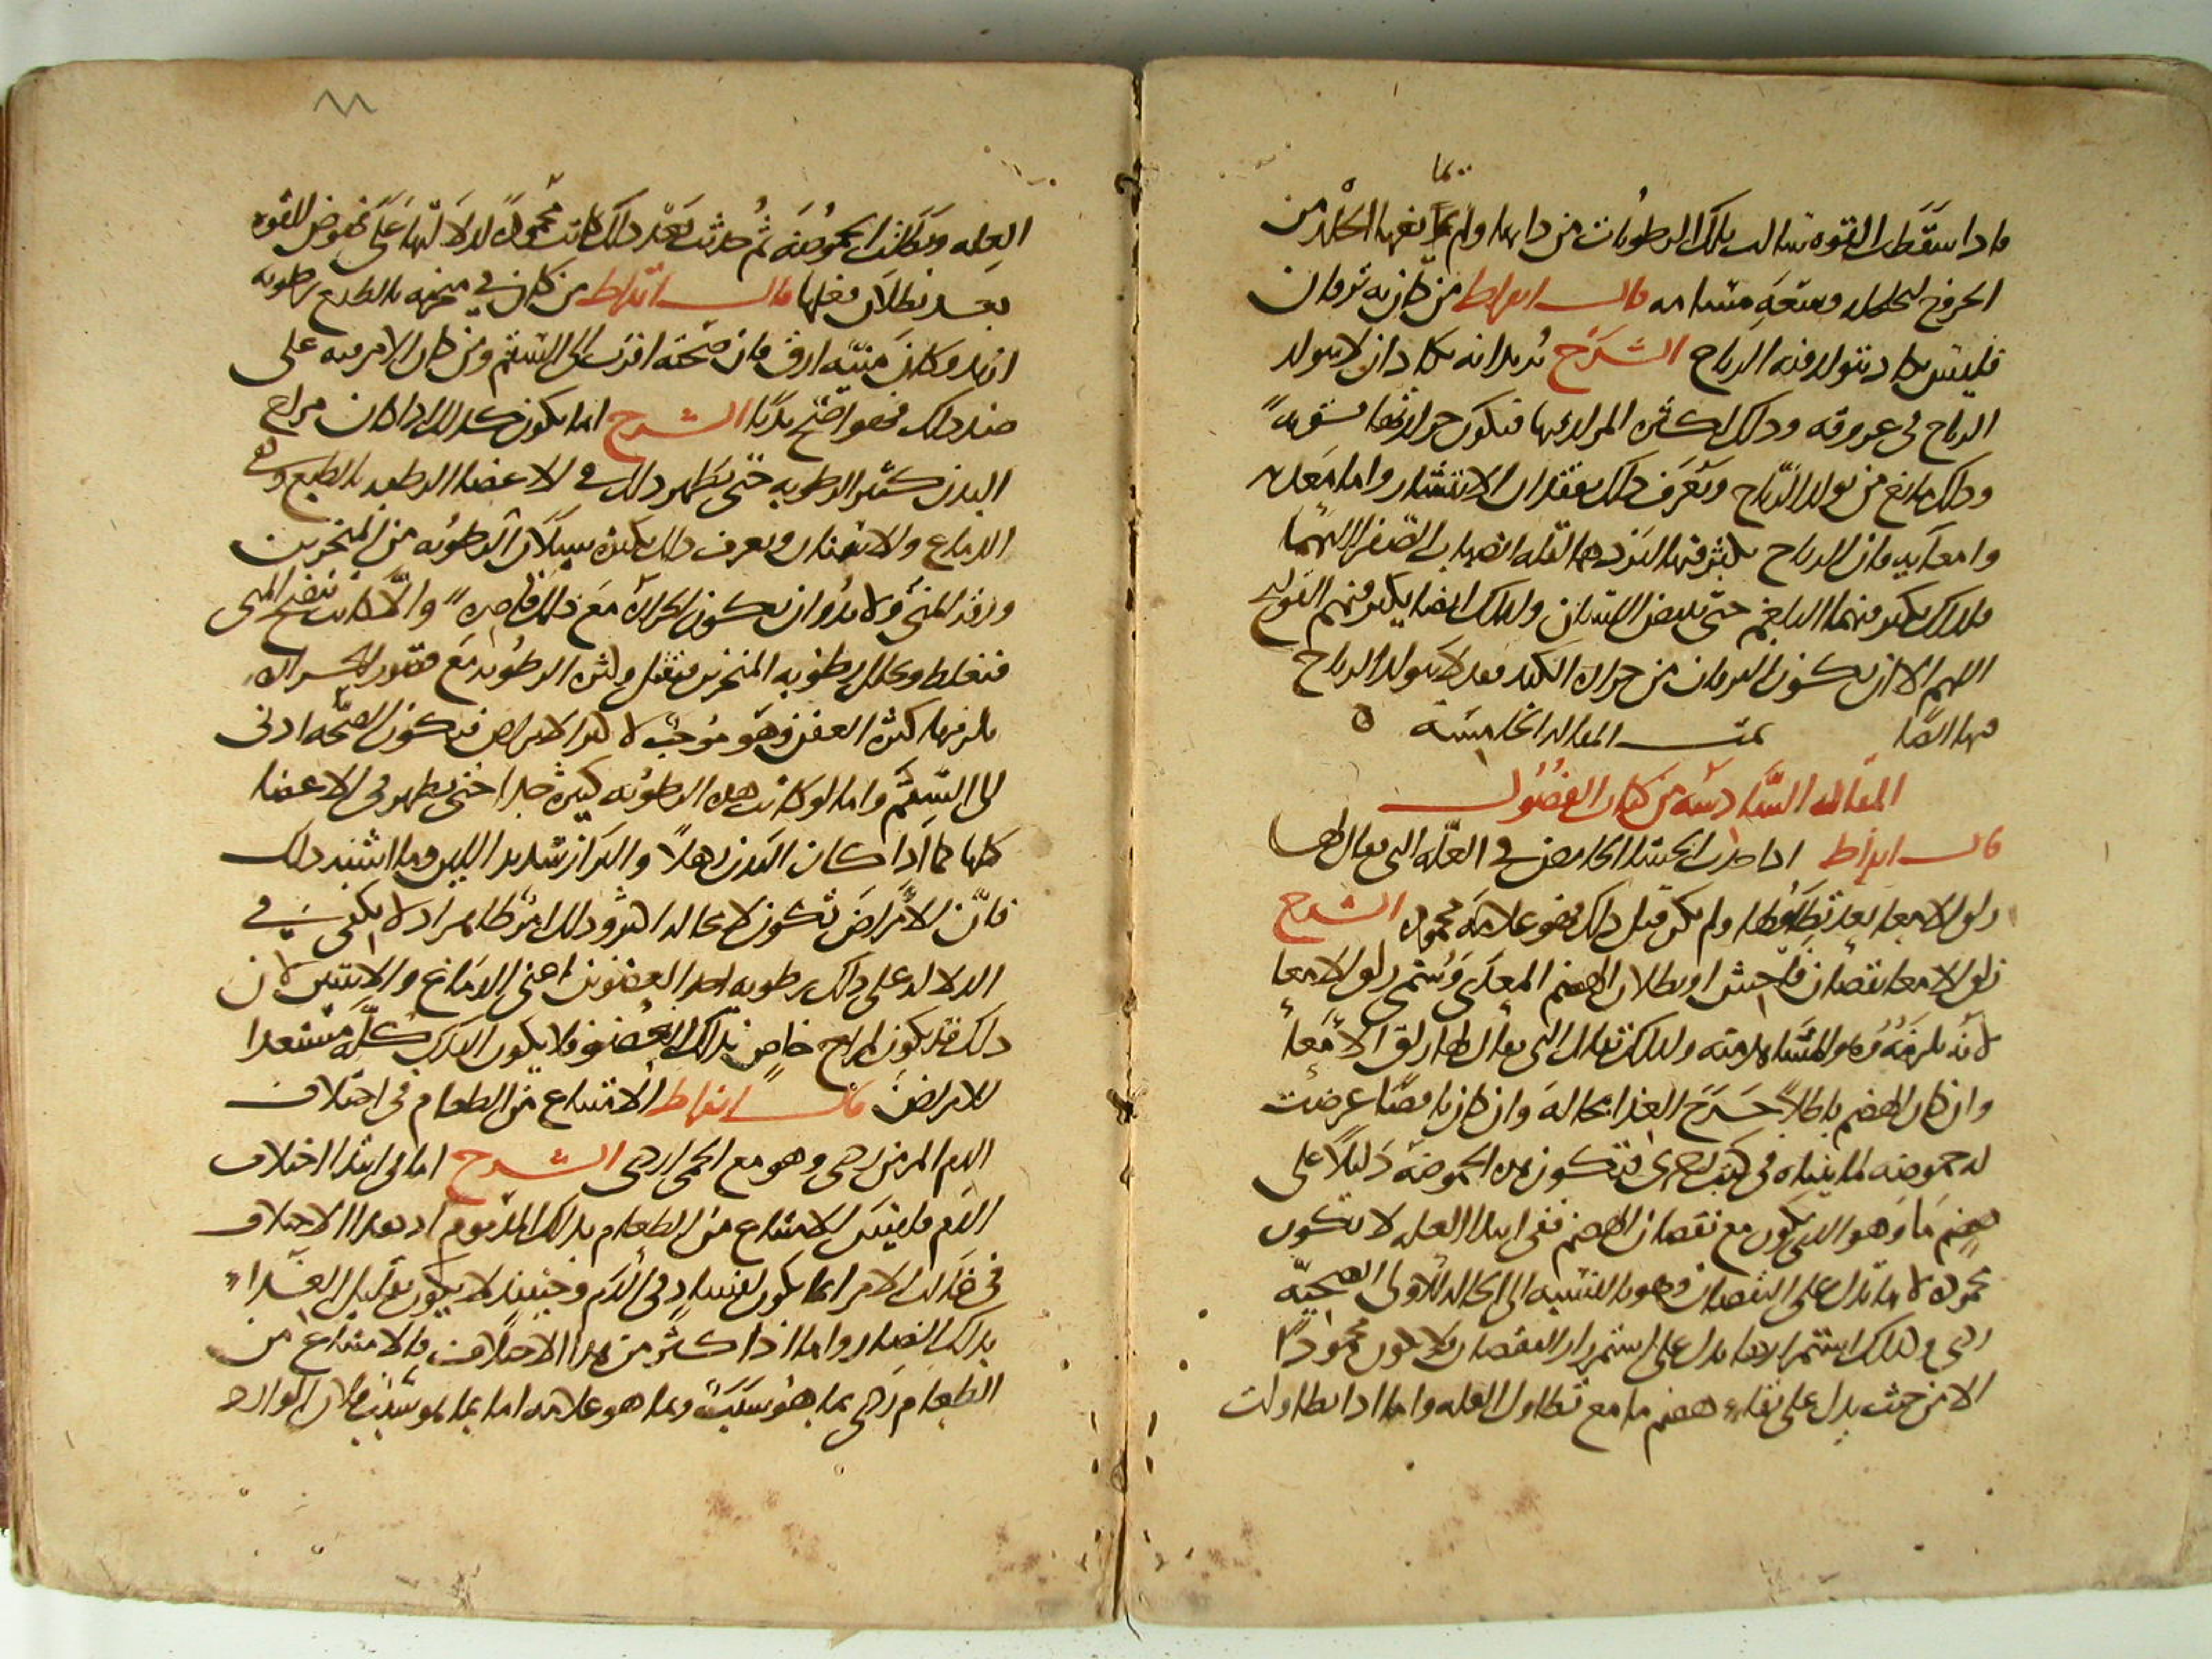 فاذا سقطت القوة سالت تلك الرطوبات من ذاتها ولم يمنعها الجلد من
الخروج لتخلخله وسعة مسامه قال ابقراط من كان به يرقان
فليس يكاد يتولد فيه الرياح الشرح يريد انه يكاد ان لا يتولد
الرياح في عروقه وذلك لكثرة المرار فيها فتكون حرارتها قوية
وذلك مانع من تولد الرياح ويعرف ذلك بفقدان الانتشار واما معدته
وامعاؤه فان الرياح تكثر فيها لبردها لقلة انصباب الصفرا اليهما
فلذلك يكثر فيهما البلغم حتى يبيض اللسان ولذلك ايضا يكثر فيهم القولنج
اللهم الا ان يكون اليرقان من حرارة الكبد فقد لا يتولد الرياح
فيها ايضا تمت المقالة الخامسة ه
المقالة السادسة من كتاب الفصول
قال ابقراط اذا حدث الجشاء الحامض في العلة التي يقال لها
زلق الامعا بعد تطاولها ولم يكن قبل ذلك فهو علامة محمودة الشرح
زلق الامعا نقصان فاحش او بطلان الهضم المعدي وسمي زلق الامعا
لانه يلزمه وهو المشاهد منه ولذلك تقال التي يقال لها زلق الامعا
وان كان الهضم باطلا خرج الغذا بحاله وان كان ناقصا عرضت
له حموضة لما بيناه في كتب اخرى فتكون هذه الحموضة دليلا على
هضم ما وهو الذي يكون مع نقصان الهضم ففي ابتدا العلة لا تكون
محمودة لانها تدل على النقصان وهو بالنسبة الى الحالة الاولى الصحية
ردي وكذلك استمرارها يدل على استمرار النقصان فلا يكون محمودا
الا من حيث يدل على بقاء هضم ما مع تطاول العلة واما اذا تطاولت
العلة وبطلت الحموضة ثم حدثت بعد ذلك كانت محمودة لدلالتها على نهوض للقوة
بعد بطلان فعلها قال ابقراط من كان في منخريه بالطبع رطوبة
ازيد وكان منيه ارق فان صحته اقرب الى السقم ومن كان الامر فيه على
ضد ذلك فهو اصح بدنا الشرح انما يكون كذلك اذا كان مزاج
البدن كثير الرطوبة حتى يظهر ذلك في الاعضا الرطبة بالطبع وهي
الدماغ والانثيان ويعرف ذلك بكثرة سيلان الرطوبة من المنخرين
ورقة المني ولا بد وان تكون الحرارة مع ذلك قاصرة والا كانت تنضج المني
فتغلظ وتحلل رطوبة المنخرين فتقل وكثرة الرطوبة مع فتور الحرارة
يلزمها كثرة العفن وهو موجب لاكثر الامراض فتكون الصحة ادنى
الى السقم واما لو كانت هذه الرطوبة كثيرة جدا حتى يظهر في الاعضا
كلها كما اذا كان البدن رهلا والبراز شديد اللين وما اشبه ذلك
فان الامراض تكون لا محالة اكثر وذلك ابقراط امراد لا يكفى في
الدلالة على ذلك رطوبة احد العضوين اعني الدماغ والانثيين لان
ذلك قد يكون لمزاج خاص بذلك العضو فلا يكون البدن كله مستعدا
للامراض قال ابقراط الامتناع من الطعام في اختلاف
الدم المزمن ردي وهو مع الحمى اردى الشرح اما في ابتدا اختلاف
الدم فليس الامتناع من الطعام بذلك المذموم اذ هذا الاختلاف
في غالب الامر انما يكون لفساد في الدم وحينئذ لا يكون تقليل الغذاء
بذلك الضار واما اذا كثر من هذا الاختلاف فالامتناع من
الطعام ردي بما هو سبب وبما هو علامة اما بما هو سبب فلان الوارد